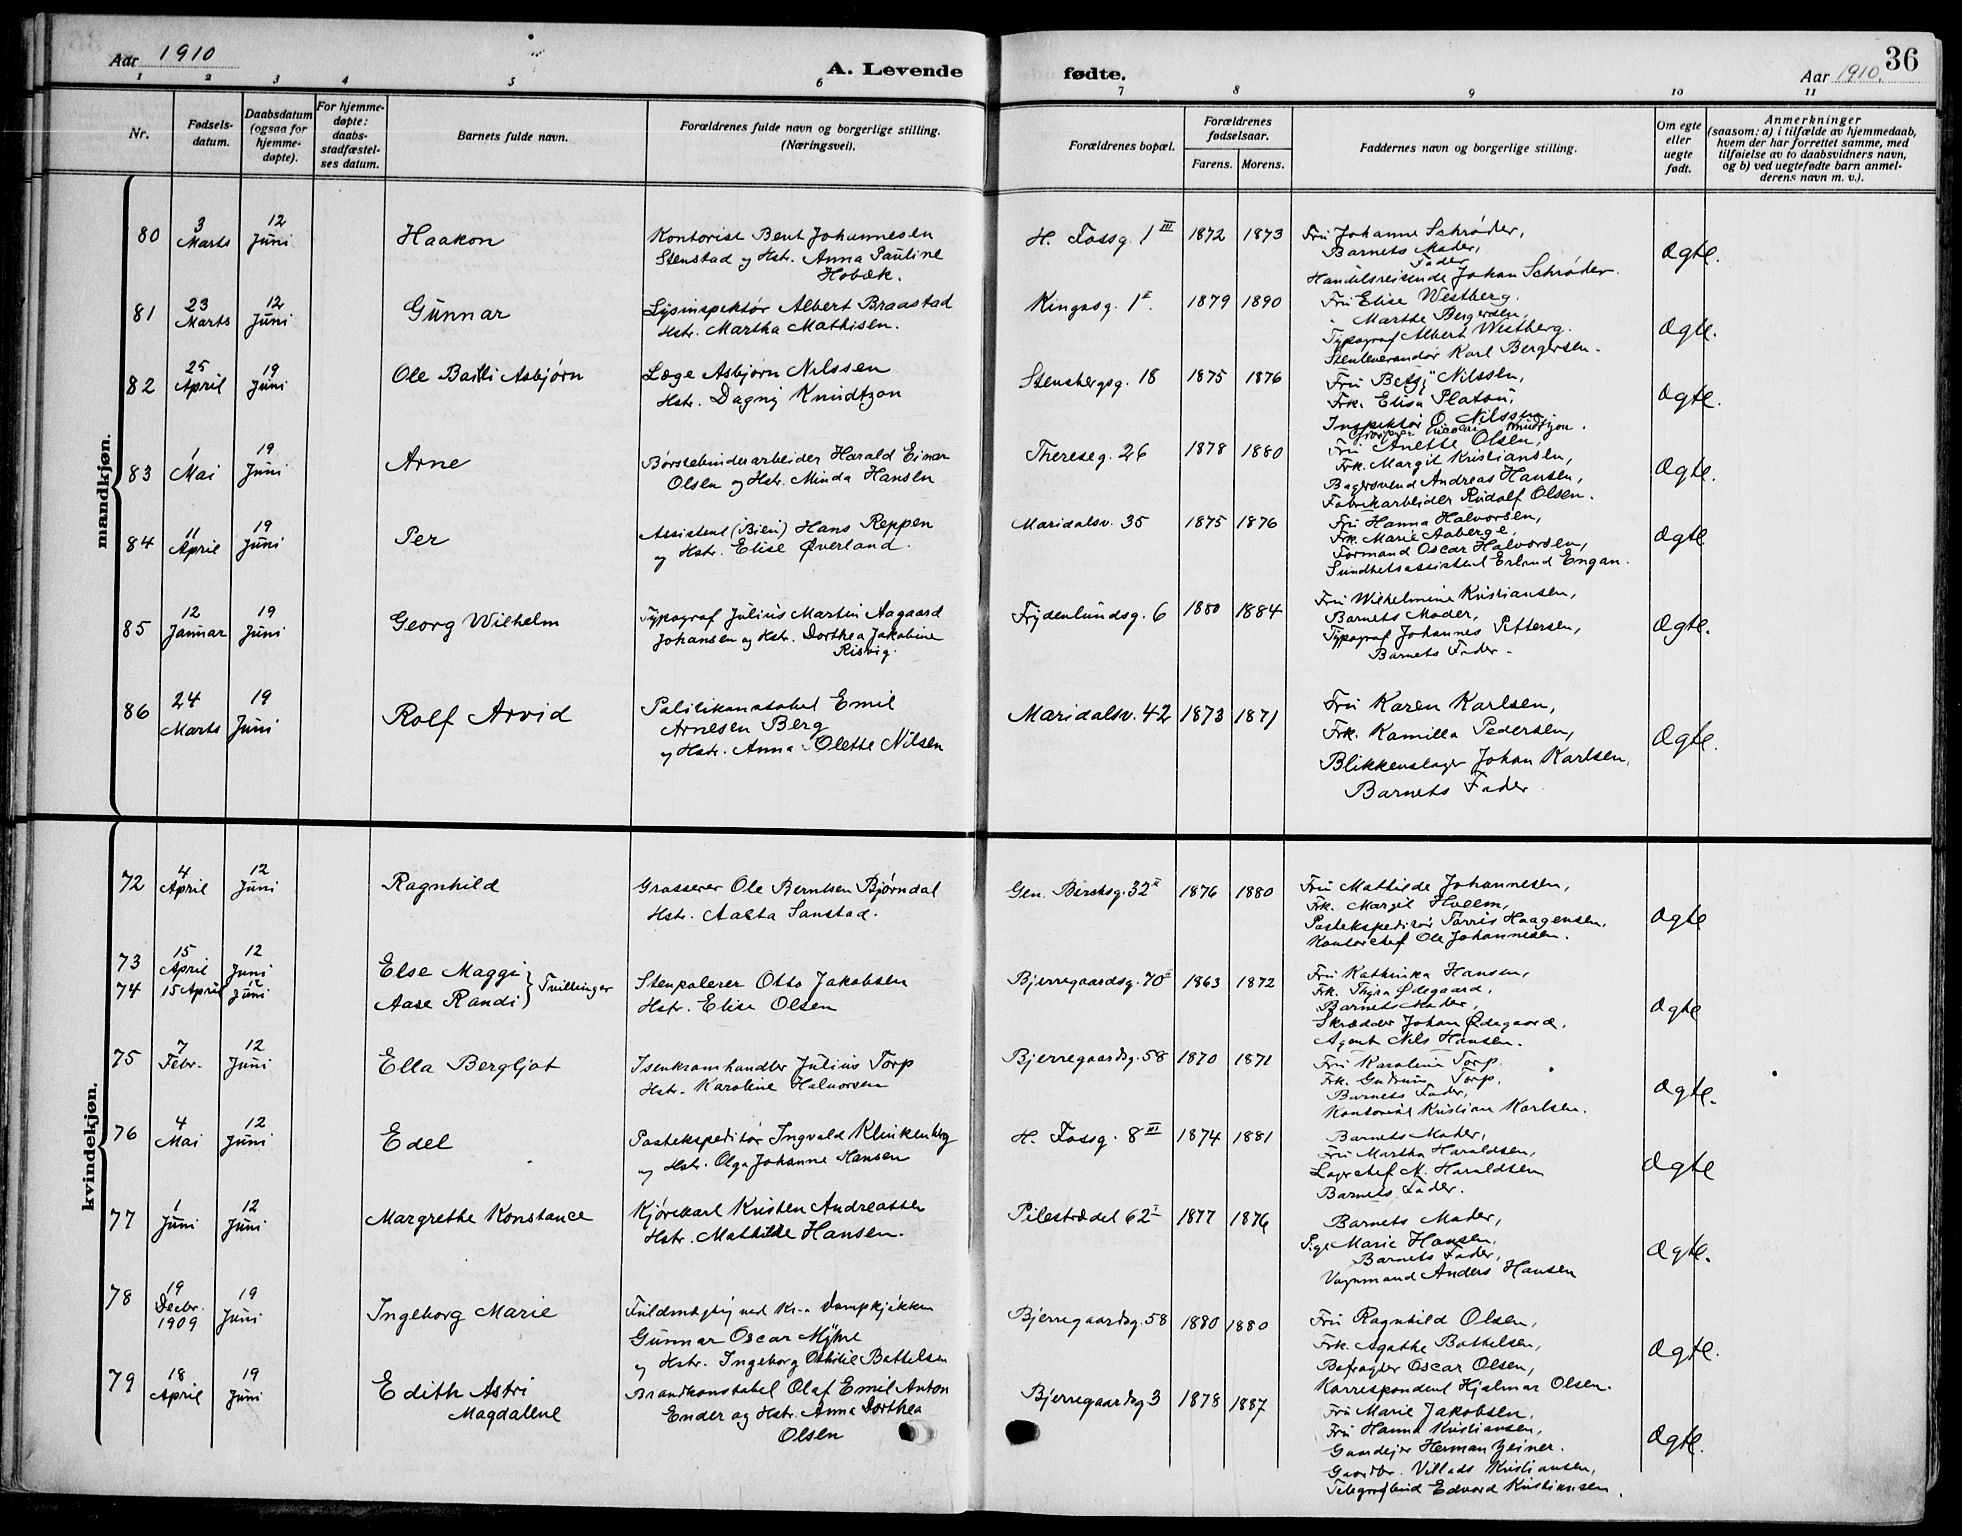 Aar 1910
A. Levende fødte.
Aar 1910.
36
1 2 3 4 5 6 7 8 9 10 11
Nr.
Fødsels-
datum.
Daabsdatum
(ogsaa for
hjemme-
døpte).
For hjemme-
døpte:
daabs-
stadfæstel-
ses datum.
Barnets fulde navn.
Forældrenes fulde navn og borgerlige stilling.
(Næringsvei).
Forældrenes bopæl.
Forældrenes
fødselsaar.
Farens. Morens.
Faddernes navn og borgerlige stilling.
Om egte
eller
uegte
født.
Anmerkninger
(saasom: a) i tilfælde av hjemmedaab,
hvem der har forrettet samme, med
tilføielse av to daabsvidners navn,
og b) ved uegtefødte barn anmel-
derens navn m. v.).
mandkjøn.
80
3 Marts
12 Juni
Haakon
Kontorist Bent Johannesen
Stenstad og Hstr. Anna Pauline
Hobæk.
H. Fossg. 1 III
1872 1873
Fru Johanne Schrøder,
Barnets Moder,
Fader
Handelsreisende Johan Schrøder.
Ægte.
81
23 Marts
12 Juni
Gunnar
Lysinspektør Albert Braastad
Hstr. Martha Mathisen.
Kingosg. 1 I.
1879 1890
Fru Elise Westberg.
Marthe Bergersen,
Typograf Albert Westberg.
Stenleverandør Karl Bergersen.
Ægte.
82
25 April
19 Juni
Ole Bailli Asbjørn
Læge Asbjørn Nilssen
Hstr. Dagny Knudtzon
Stensbergsg. 18
1875 1876
Fru Betzy Nilssen,
Frk. Elisa Platou,
Inspektør O. Nilssen
Knudtzon.
Ægte.
83
1 Mai
19 Juni
Arne
Børstebinderarbeider Harald Einar
Olsen og Hstr. Minda Hansen
Thereseg. 26
1878 1880
Fru Anette Olsen,
Frk. Margit Kristiansen,
Bagersvend Andreas Hansen,
Fabrikarbeider Rudolf Olsen.
Ægte.
84
11 April
19 Juni
Per
Assistent (Bien) Hans Reppen
og Hstr. Elise Øverland.
Maridalsv. 35
1875 1876
Fru Hanna Halvorsen,
Frk. Marie Aaberge,
Formand Oscar Halvorsen,
Sundhetsassistent Erland Engan.
Ægte
85
12 Januar
19 Juni
Georg Wilhelm
Typograf Julius Martin Aagaard
Johansen og Hstr. Dorthea Jakobine
Risvig.
Frydenlundsg. 6
1880 1884
Fru Wilhelmine Kristiansen,
Barnets Moder,
Typograf Johannes Pettersen,
Barnets Fader.
Ægte.
86
24 Marts
19 Juni
Rolf Arvid
Politikonstabel Emil
Arnesen Berg
og Hstr. Anna Olette Nilsen
Maridalsv. 42
1873 1871
Fru Karen Karlsen,
Frk. Kamilla Pedersen,
Blikkenslager Johan Karlsen,
Barnets Fader.
Ægte.
kvindekjøn.
72
4 April
12 Juni
Ragnhild
Grosserer Ole Berntsen Bjørndal
Hstr. Aasta Sanstad.
Gen. Birchsg. 32 II
1876 1880
Fru Mathilde Johannesen,
Frk. Margit Hveem,
Postekspeditør Torris Haagensen,
Kontorchef Ole Johannesen.
Ægte
73
15 April
12 Juni
Else Maggi
74
15 April
12 Juni
Aase Randi } Tvillinger
Stenpolerer Otto Jakobsen
Hstr. Elise Olsen
Bjerregaardsg. 70 II
1863 1872
Fru Kathinka Hansen,
Frk. Thyra Ødegaard,
Barnets Moder,
Skrædder Johan Ødegaard,
Agent Nils Hansen.
Ægte
75
7 Febr.
12 Juni
Ella Bergljot
Isenkramhandler Julius Torp
Hstr. Karoline Halvorsen
Bjerregaardsg. 58
1870 1871
Fru Karoline Torp.
Frk. Gudrun Torp,
Barnets Fader,
Kontorist Kristian Karlsen.
Ægte.
76
4 Mai
12 Juni
Edel
Postekspeditør Ingvald Klinkenberg
og Hstr. Olga Johanne Hansen
H. Fossg. 8 III
1874 1881
Barnets Moder,
Fru Martha Haraldsen,
Lagerchef M. Haraldsen
Barnets Fader.
Ægte
77
1 Juni
12 Juni
Margrethe Konstance
Kjørekarl Kristen Andreassen
Hstr. Mathilde Hansen.
Pilestrædet 62 I
1877 1876
Barnets Moder,
Pige Marie Hansen,
Barnets Fader,
Vognmand Anders Hansen
Ægte.
78
19 Decbr. 1909
19 Juni
Ingeborg Marie
Fuldmægtig ved Kr.a Dampkjøkken
Gunnar Oscar Myhre
og Hstr. Ingeborg Othilie Bottelsen
Bjerregaardsg. 58
1880 1880
Fru Ragnhild Olsen,
Frk. Agathe Bottelsen,
Befragter Oscar Olsen,
Korrespondent Hjalmar Olsen.
Ægte.
79
18 April
19 Juni
Edith Astri
Magdalene
Brandkonstabel Olaf Emil Anton
Ender og Hstr. Anna Dorthea
Olsen
Bjerregaardsg 3
1878 1887
Fru Marie Jakobsen,
Fru Hanna Kristiansen,
Gaardejer Herman Zeiner.
Gaardbr. Villads Kristiansen,
Telegrafbud Edvard Kristiansen.
Ægte.